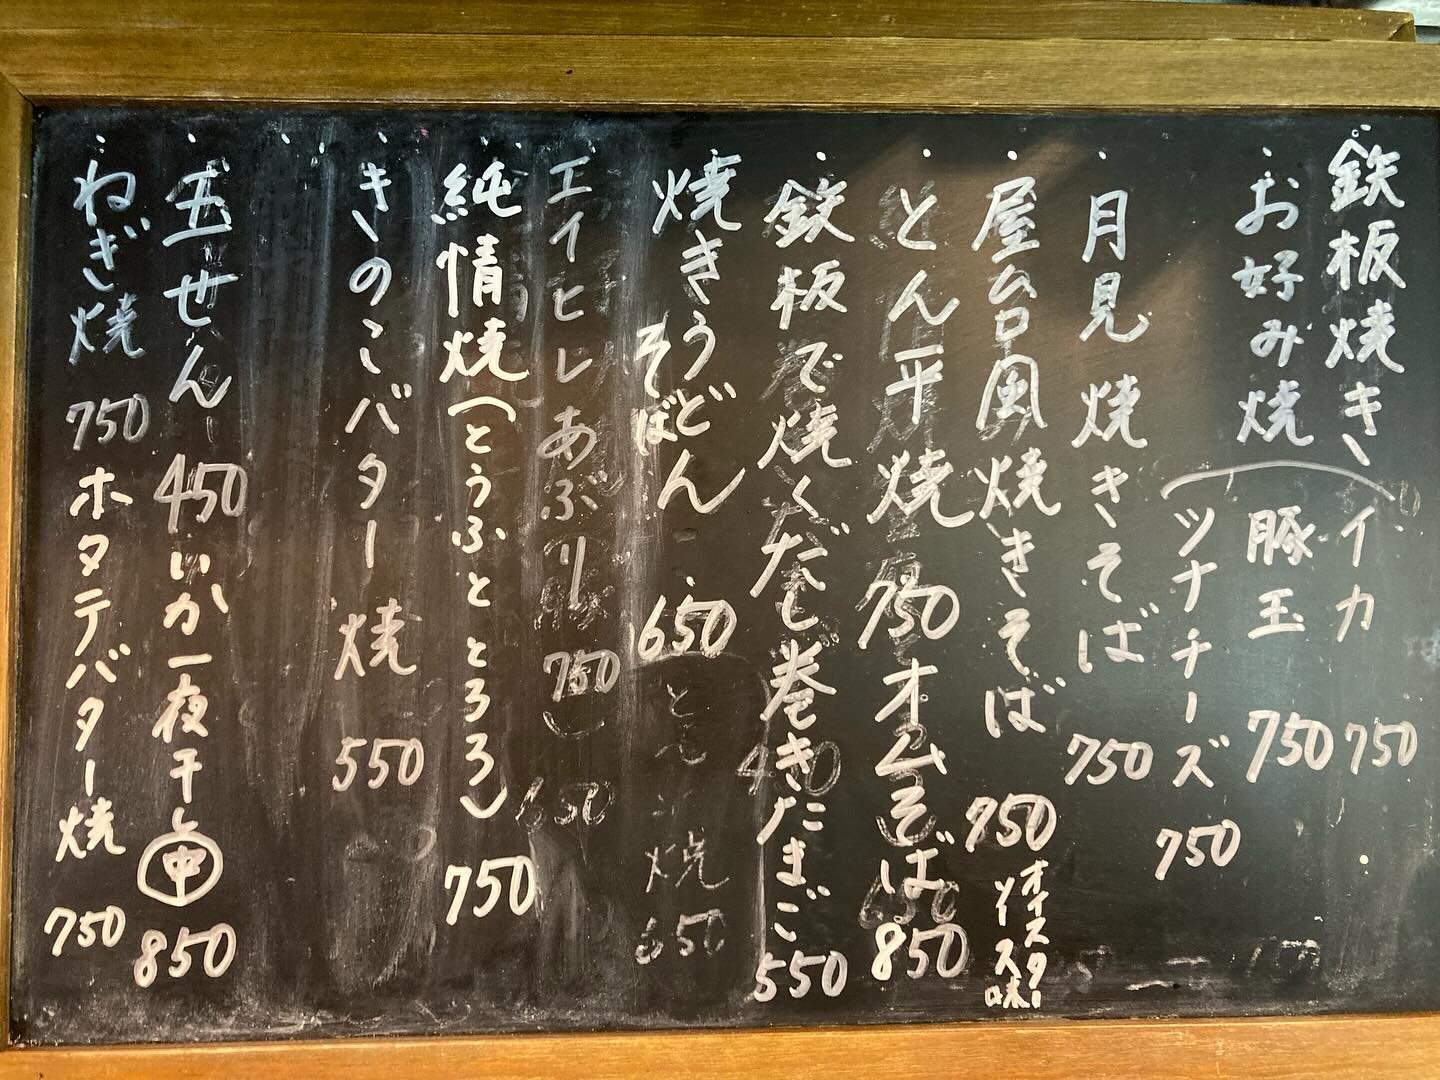 鉄板焼き
お好み焼
イカ 750
豚玉 750
ツナチーズ 750
月見焼きそば 750
屋台風焼きそば 750
オイスターソース味
とん平焼 750
オムそば 850
鉄板で焼くだし巻きたまご 550
焼きうどん
そば
650
エイヒレあぶり 750
純情焼(とうふととろろ) 750
きのこバター焼 550
玉せん 450
いか一夜干し 中 850
ねぎ焼 750
ホタテバター焼 750